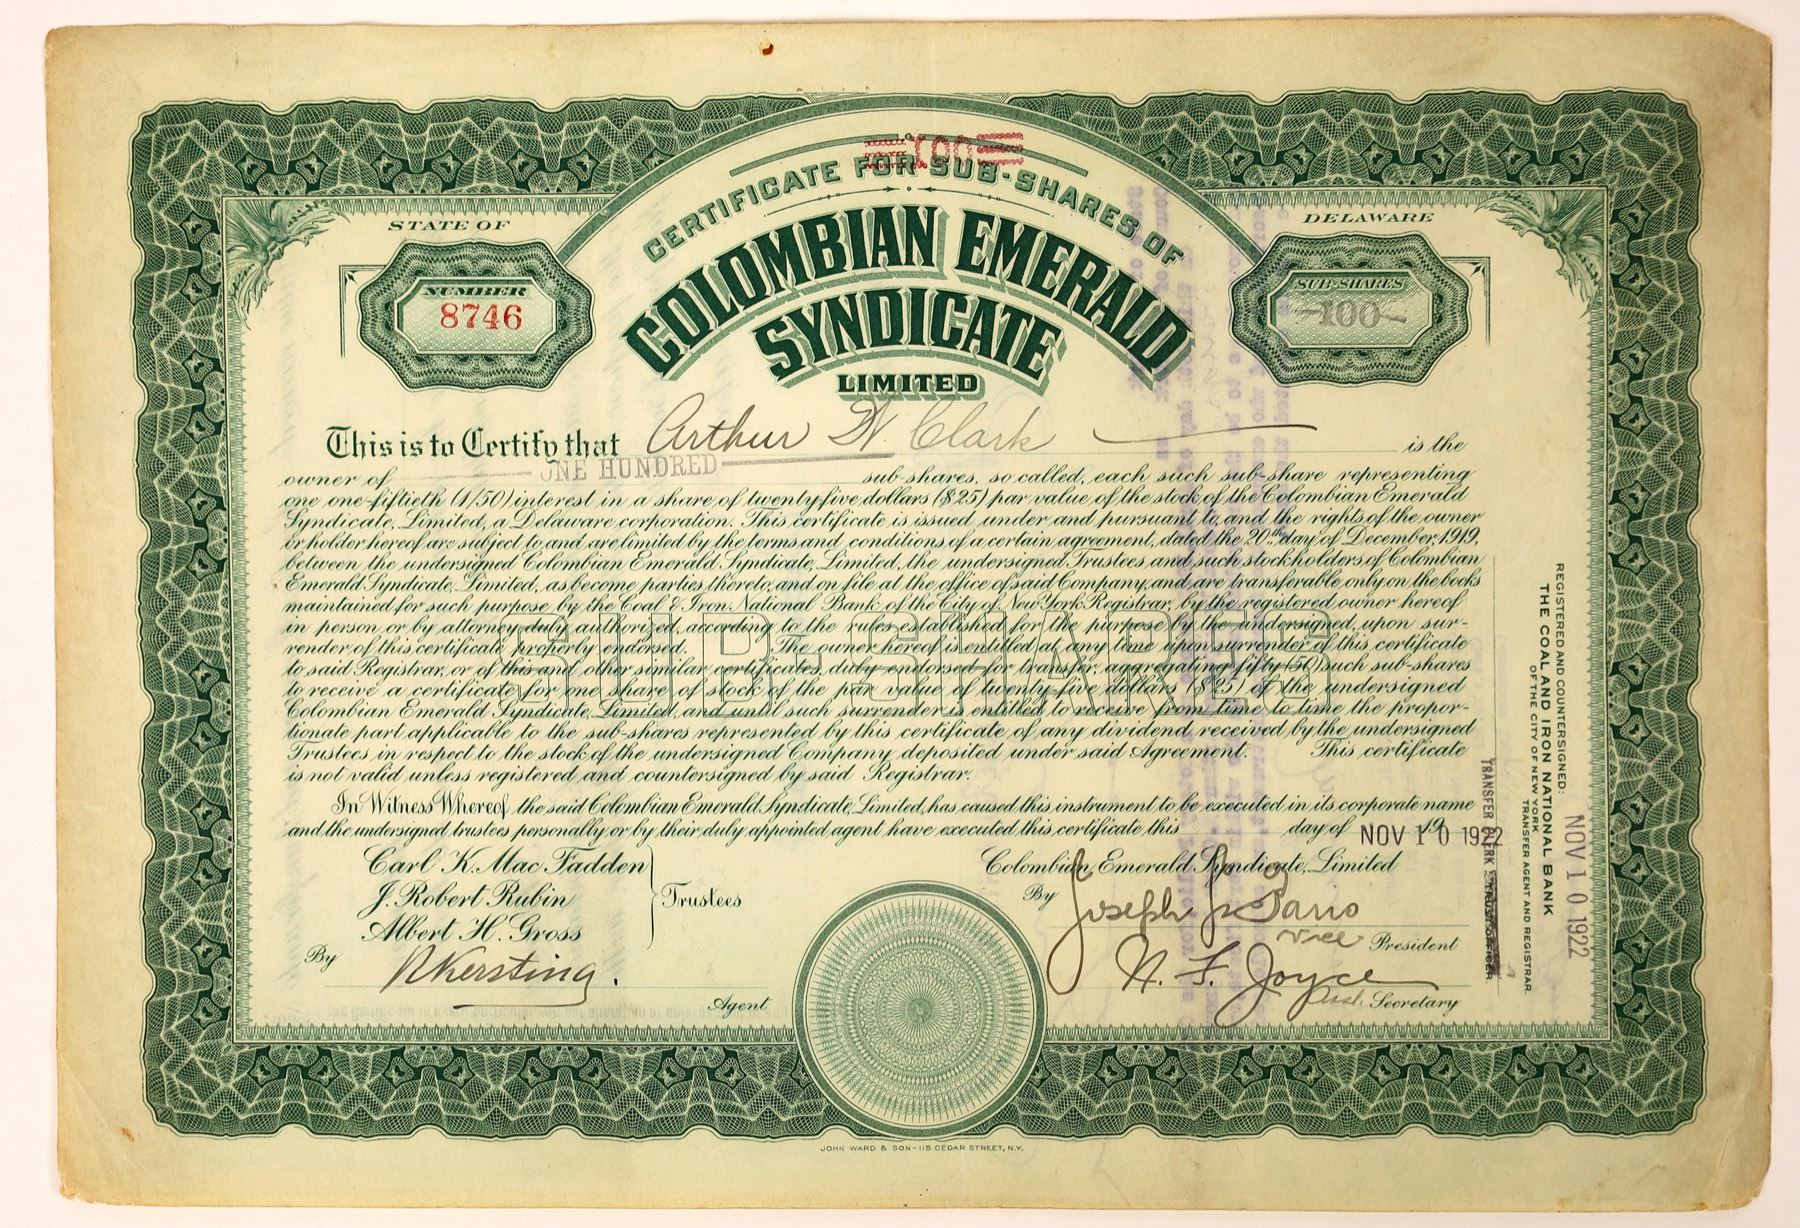 100
CERTIFICATE FOR SUB-SHARES OF
COLOMBIAN EMERALD
SYNDICATE
LIMITED
STATE OF
DELAWARE
NUMBER
8746
SUB-SHARES
-100-
This is to Certify that Arthur W. Clark is the
owner of ONE HUNDRED sub-shares, so called, each such sub-share representing
one one-fiftieth (1/50) interest in a share of twenty-five dollars ($25) par value of the stock of the Colombian Emerald
Syndicate, Limited, a Delaware corporation. This certificate is issued under and pursuant to, and the rights of the owner
or holder hereof are subject to and are limited by the terms and conditions of a certain agreement, dated the 20th day of December, 1919,
between the undersigned Colombian Emerald Syndicate, Limited, the undersigned Trustees and such stockholders of Colombian
Emerald Syndicate, Limited, as become parties thereto, and on file at the office of said Company, and are transferable only on the books
maintained for such purpose by the Coal & Iron National Bank of the City of New York, Registrar, by the registered owner hereof
in person or by attorney duly authorized, according to the rules established for the purpose by the undersigned, upon sur-
render of this certificate properly endorsed. The owner hereof is entitled at any time upon surrender of this certificate
to said Registrar, or of this and other similar certificates, duly endorsed for transfer, aggregating fifty (50) such sub-shares
to receive a certificate for one share of stock of the par value of twenty-five dollars ($25) of the undersigned
Colombian Emerald Syndicate, Limited, and until such surrender is entitled to receive from time to time the propor-
tionate part applicable to the sub-shares represented by this certificate of any dividend received by the undersigned
Trustees in respect to the stock of the undersigned Company deposited under said Agreement. This certificate
is not valid unless registered and countersigned by said Registrar.
SUB SHARES
In Witness Whereof the said Colombian Emerald Syndicate, Limited, has caused this instrument to be executed in its corporate name
and the undersigned trustees personally or by their duly appointed agent have executed this certificate this day of 19 NOV 10 1922
Carl K. Mac Fadden
J. Robert Rubin
Albert H. Gross
Trustees
By N Kersting.
Agent
Colombian Emerald Syndicate, Limited
By Joseph
Vice President
N. F. Joyce
Asst. Secretary
REGISTERED AND COUNTERSIGNED:
THE COAL AND IRON NATIONAL BANK
OF THE CITY OF NEW YORK
TRANSFER AGENT AND REGISTRAR.
NOV 10 1922
TRANSFER CLERK
JOHN WARD & SON-115 CEDAR STREET, N.Y.